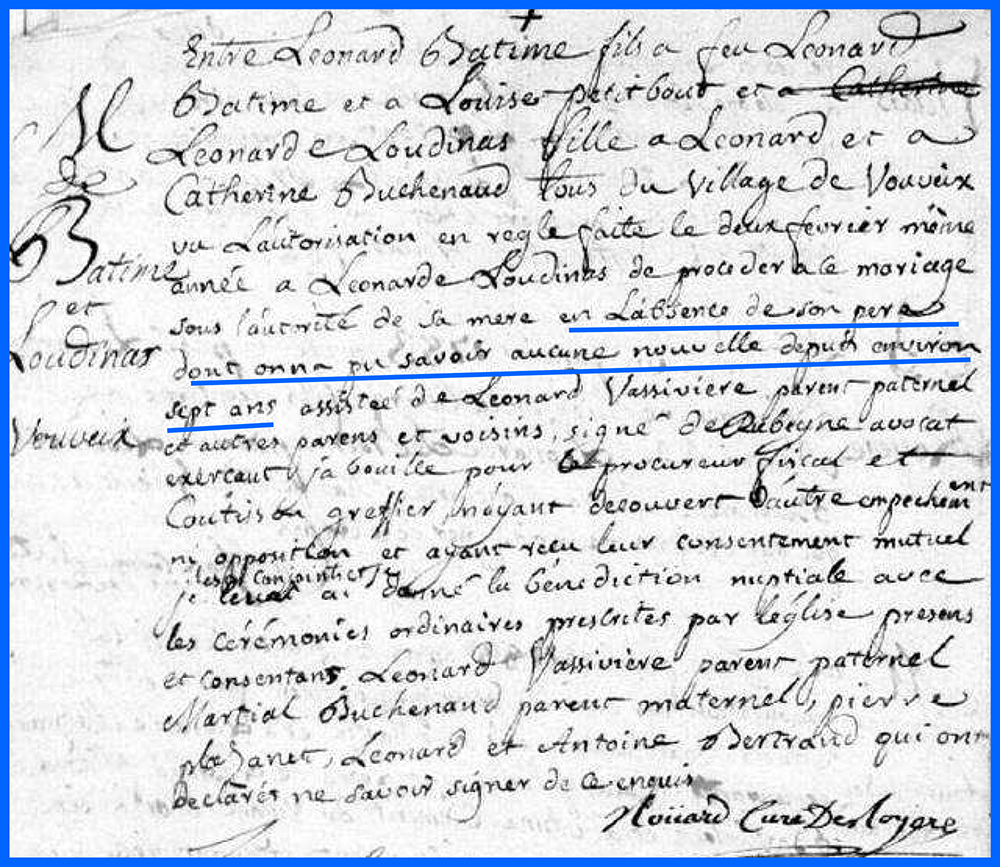 M
de
Batime
et
Loudinas
Veuveix
Entre Leonard Batime fils a feu Leonard
Batime et a Louise petitbout et a Catherine
Leonarde Loudinas fille a Leonard et a
Catherine Buchenaud tous du village de Vouveix
vu L'autorisation en regle faite le deux fevrier même
année a Leonarde Loudinas de proceder a ce mariage
sous l'autorité de sa mere en L'absence de son pere
dont on na pu savoir aucune nouvelle depuis environ
sept ans assistee de Leonard Vassiviere parent paternel
et autres parens et voisins, signé de Rubeyne avocat
exercant pour le procureur fiscal et
greffier, n'ayant decouvert d'autre empechement
ni opposition et ayant recu leur consentement mutuel
je les ai conjoints et ai donné la bénediction nuptiale avec
les cérémonies ordinaires prescrites par l'église presens
et consentans Leonard Vassivière parent paternel
Martial Buchenaud parent maternel, pierre
planet, Leonard et Antoine Bertraud qui ont
declarés ne savoir signer de ce enquis
Noüard Curé Des Royere